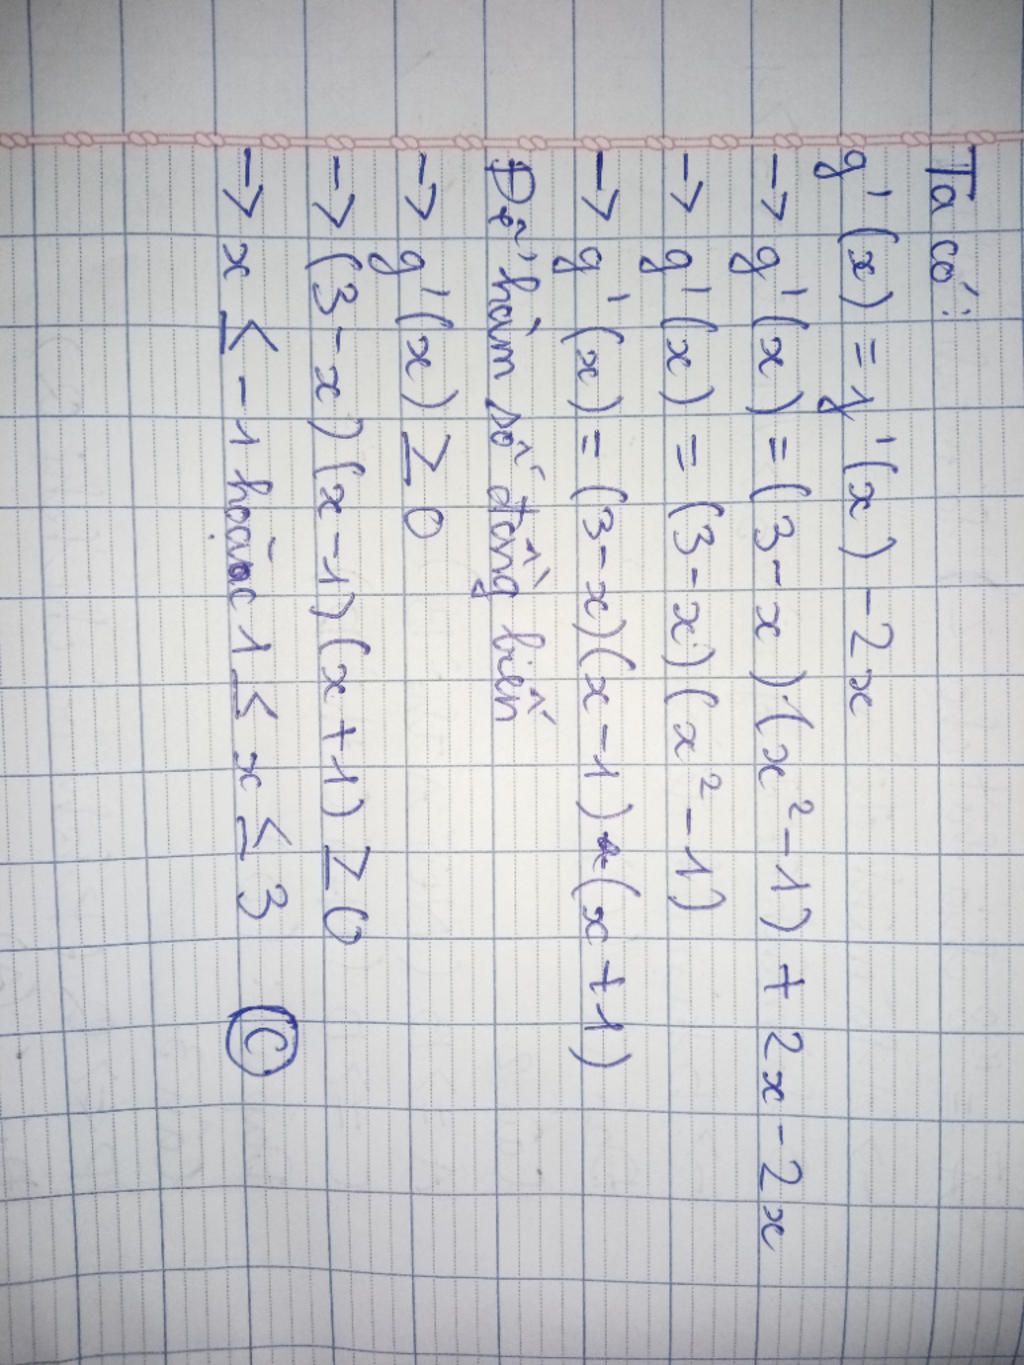 Ta có:
g'(x) = y'(x) - 2x
→ g'(x) = (3-x)(x²-1) + 2x - 2x
→ g'(x) = (3-x)(x²-1)
→ g'(x) = (3-x)(x-1)(x+1)
Để hàm số đồng biến
→ g'(x) ≥ 0
→ (3-x)(x-1)(x+1) ≥ 0
→ x ≤ -1 hoặc 1 ≤ x ≤ 3 C